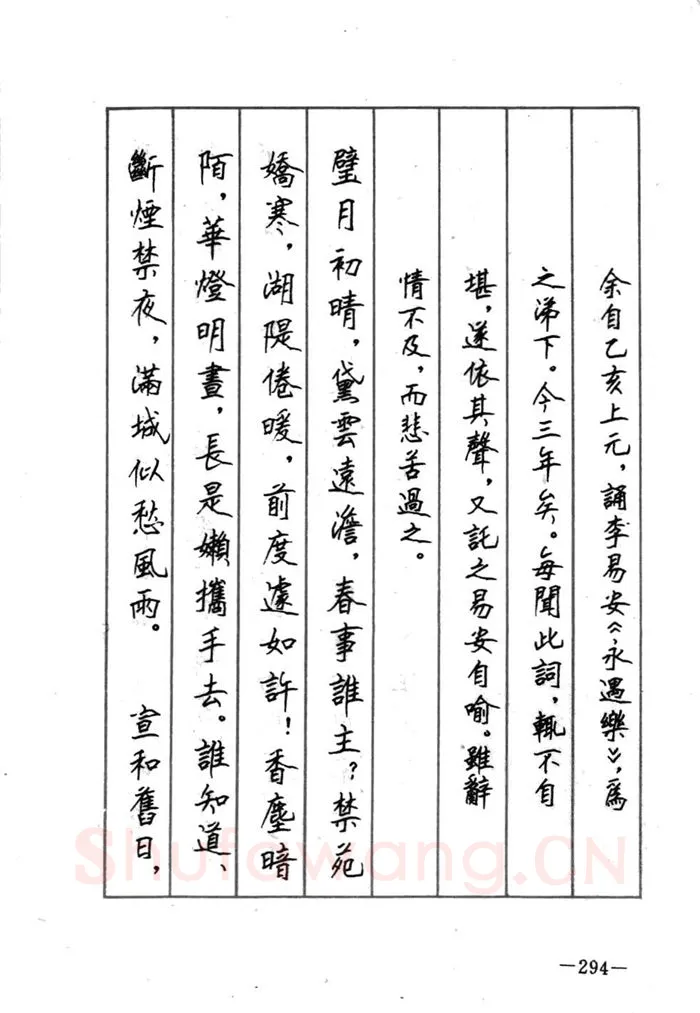 余自乙亥上元，誦李易安《永遇樂》，爲
之涕下。今三年矣。每聞此詞，輒不自
堪，遂依其聲，又託之易安自喻。雖辭
情不及，而悲苦過之。
璧月初晴，黛雲遠澹，春事誰主？禁苑
嬌寒，湖隄倦暖，前度遽如許！香塵暗
陌，華燈明晝，長是嬾攜手去。誰知道、
斷煙禁夜，滿城似愁風雨。 宣和舊日，
Shufawang.CN
—294—